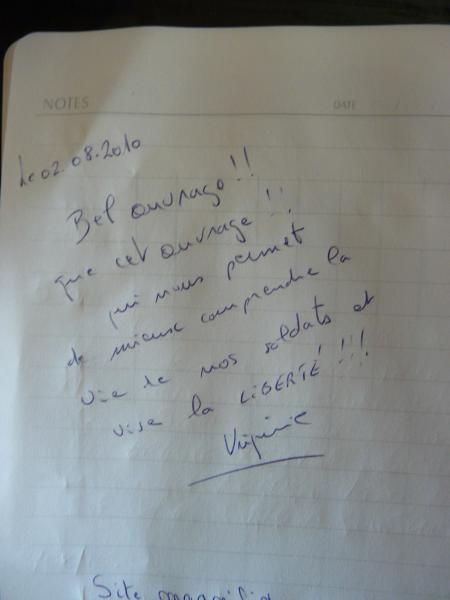 NOTES DATE
Le 02.08.2010
Bel ouvrage !!
que cet ouvrage !!
qui nous permet
de mieux comprendre la
vie de nos soldats et
vive la LIBERTÉ !!!
Virginie
Site